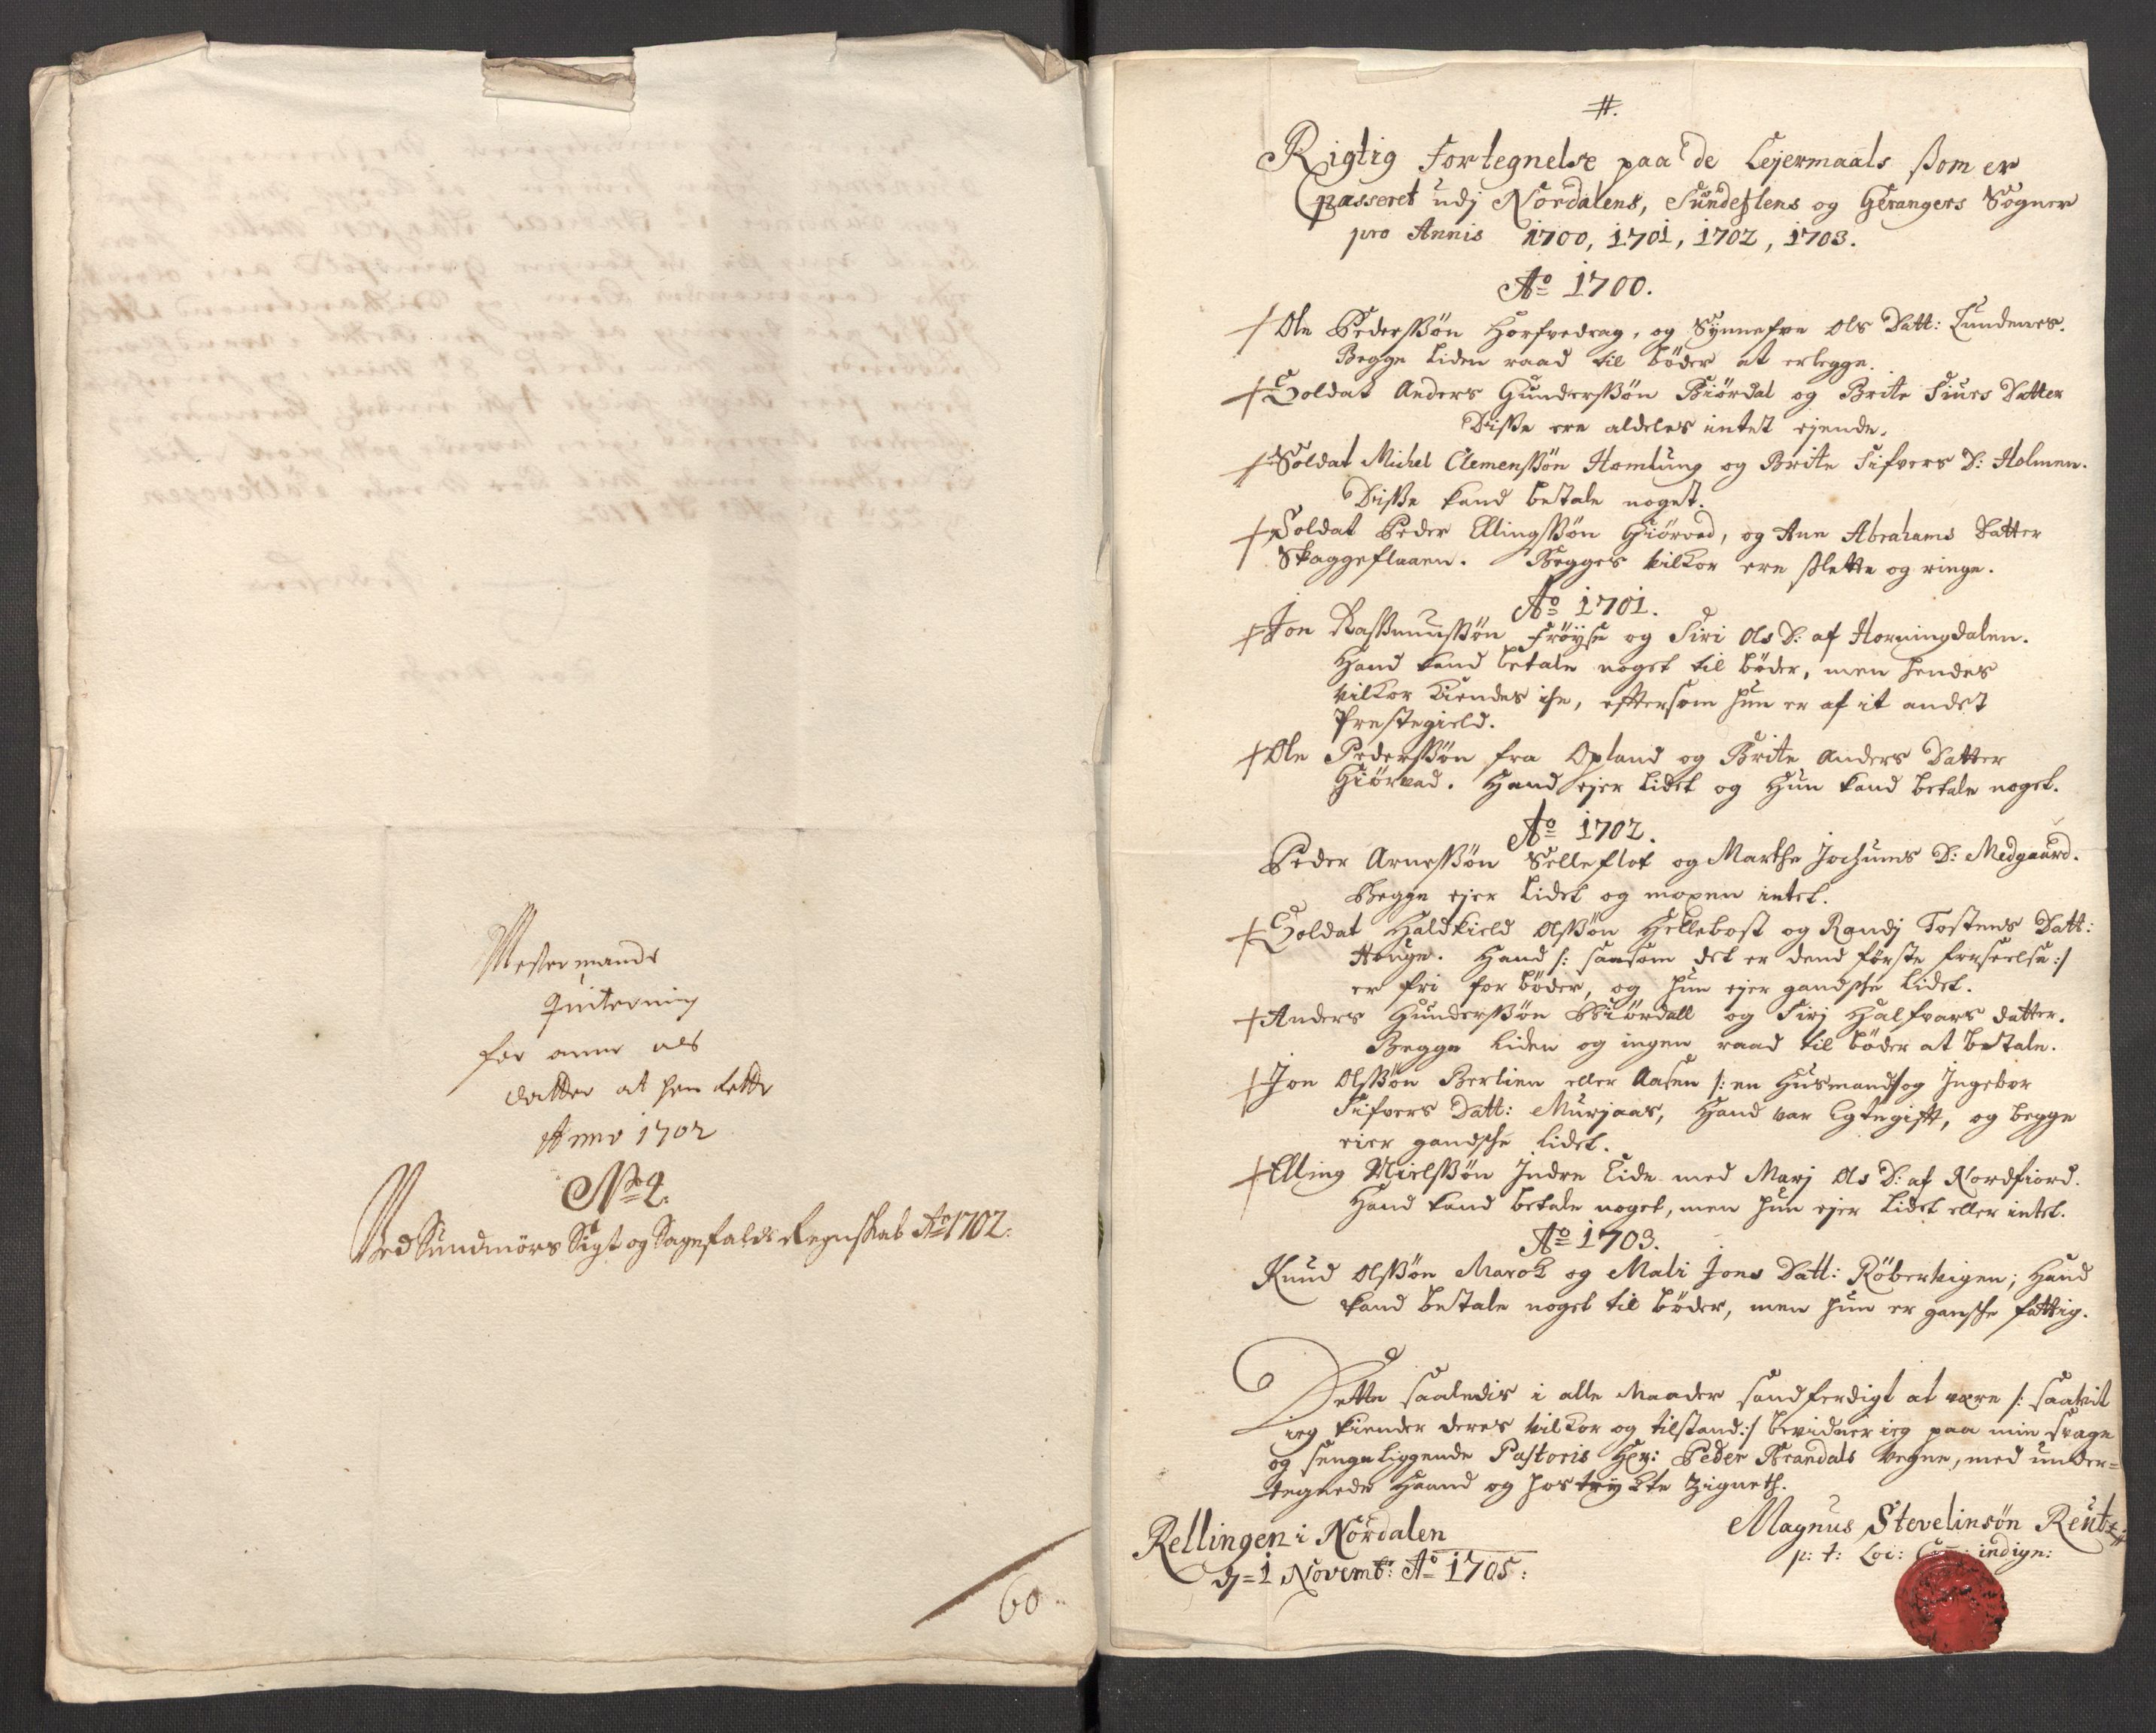 Mestermands
quitering
for anne oels
datter at hen Rette
Anno 1702
No 2.
Ved Sundmörs Sigt og Sagefalds Regnskab Ao 1702:
60
#.
Rigtig Fortegnelse paa de Lejermaals som er
passeret udj Nordalens, Sundeslens og Gerangers Sogner
pro Annis 1700, 1701, 1702, 1703.
Ao 1700.
Ole Pederssön Horfvedrag, og Synnefve Ols Datt: Lundenes.
Begge liden raad til böder at erlegge.
Soldat Anders Gunderssön Biördal og Brite Siurs Datter
Disse ere aldeles intet ejende.
Soldat Michel Clemenssön Homlung og Brite Sifvers D: Holmen.
Disse kand betale noget.
Soldat Peder Ellingssön Giörvad, og Ane Abrahams Datter
Skaggeflaaen. Begges vilkor ere slette og ringe.
Ao 1701.
Jon Rassmussön Fröyse og Siri Ols D: af Horningdalen.
Hand kand betale noget til böder, men hendes
vilkor kiendes iche, eftersom hun er af it andet
Prestegield.
Ole Pederssön fra Opland og Brite Anders Datter
Giörvad. Hand ejer lidet og Hun kand betale noget.
Ao 1702.
Peder Arnessön Selleflot og Marthe Jochums D: Medgaard.
Begge ejer lidet og moxen intet.
Soldat Haldkield Olssön Hellebost og Randj Tostens Datt:
Houge. Hand /: saasom det er dend förste forseelse :/
er fri for böder, og hun ejer gandsche lidet.
Anders Gunderssön Biördall og Sirj Halfvars datter.
Begge liden og ingen raad til böder at betale.
Jon Olssön Berlien eller Aasen /: en Husmand/ og Ingebor
Sifvers Datt: Murjaas, Hand var Egtegift, og begge
eier gandsche lidet.
Elling Nielssön Indre Lide med Marj Ols D: af Nordfiord.
Hand kand betale noget, men hun ejer lidet eller intet.
Ao 1703.
Knud Olssön Marok og Mali Jons Datt: Röbervigen; Hand
kand betale noget til böder, men hun er gansche fattig.
Dette saaledis i alle Maader sandferdigt at være /: saavit
ieg kiender deres vilkor og tilstand :/ bevidner ieg paa min svage
og sengeliggende Pastoris Hr: Peder Strandals vegne, med under=
tegnede Haand og hostrykte Zigneth.
Rellingen i Nordalen
d= 1 Novembr: Ao 1705:
Magnus Stevelinsön Reutz
p: t: Loc: indign: